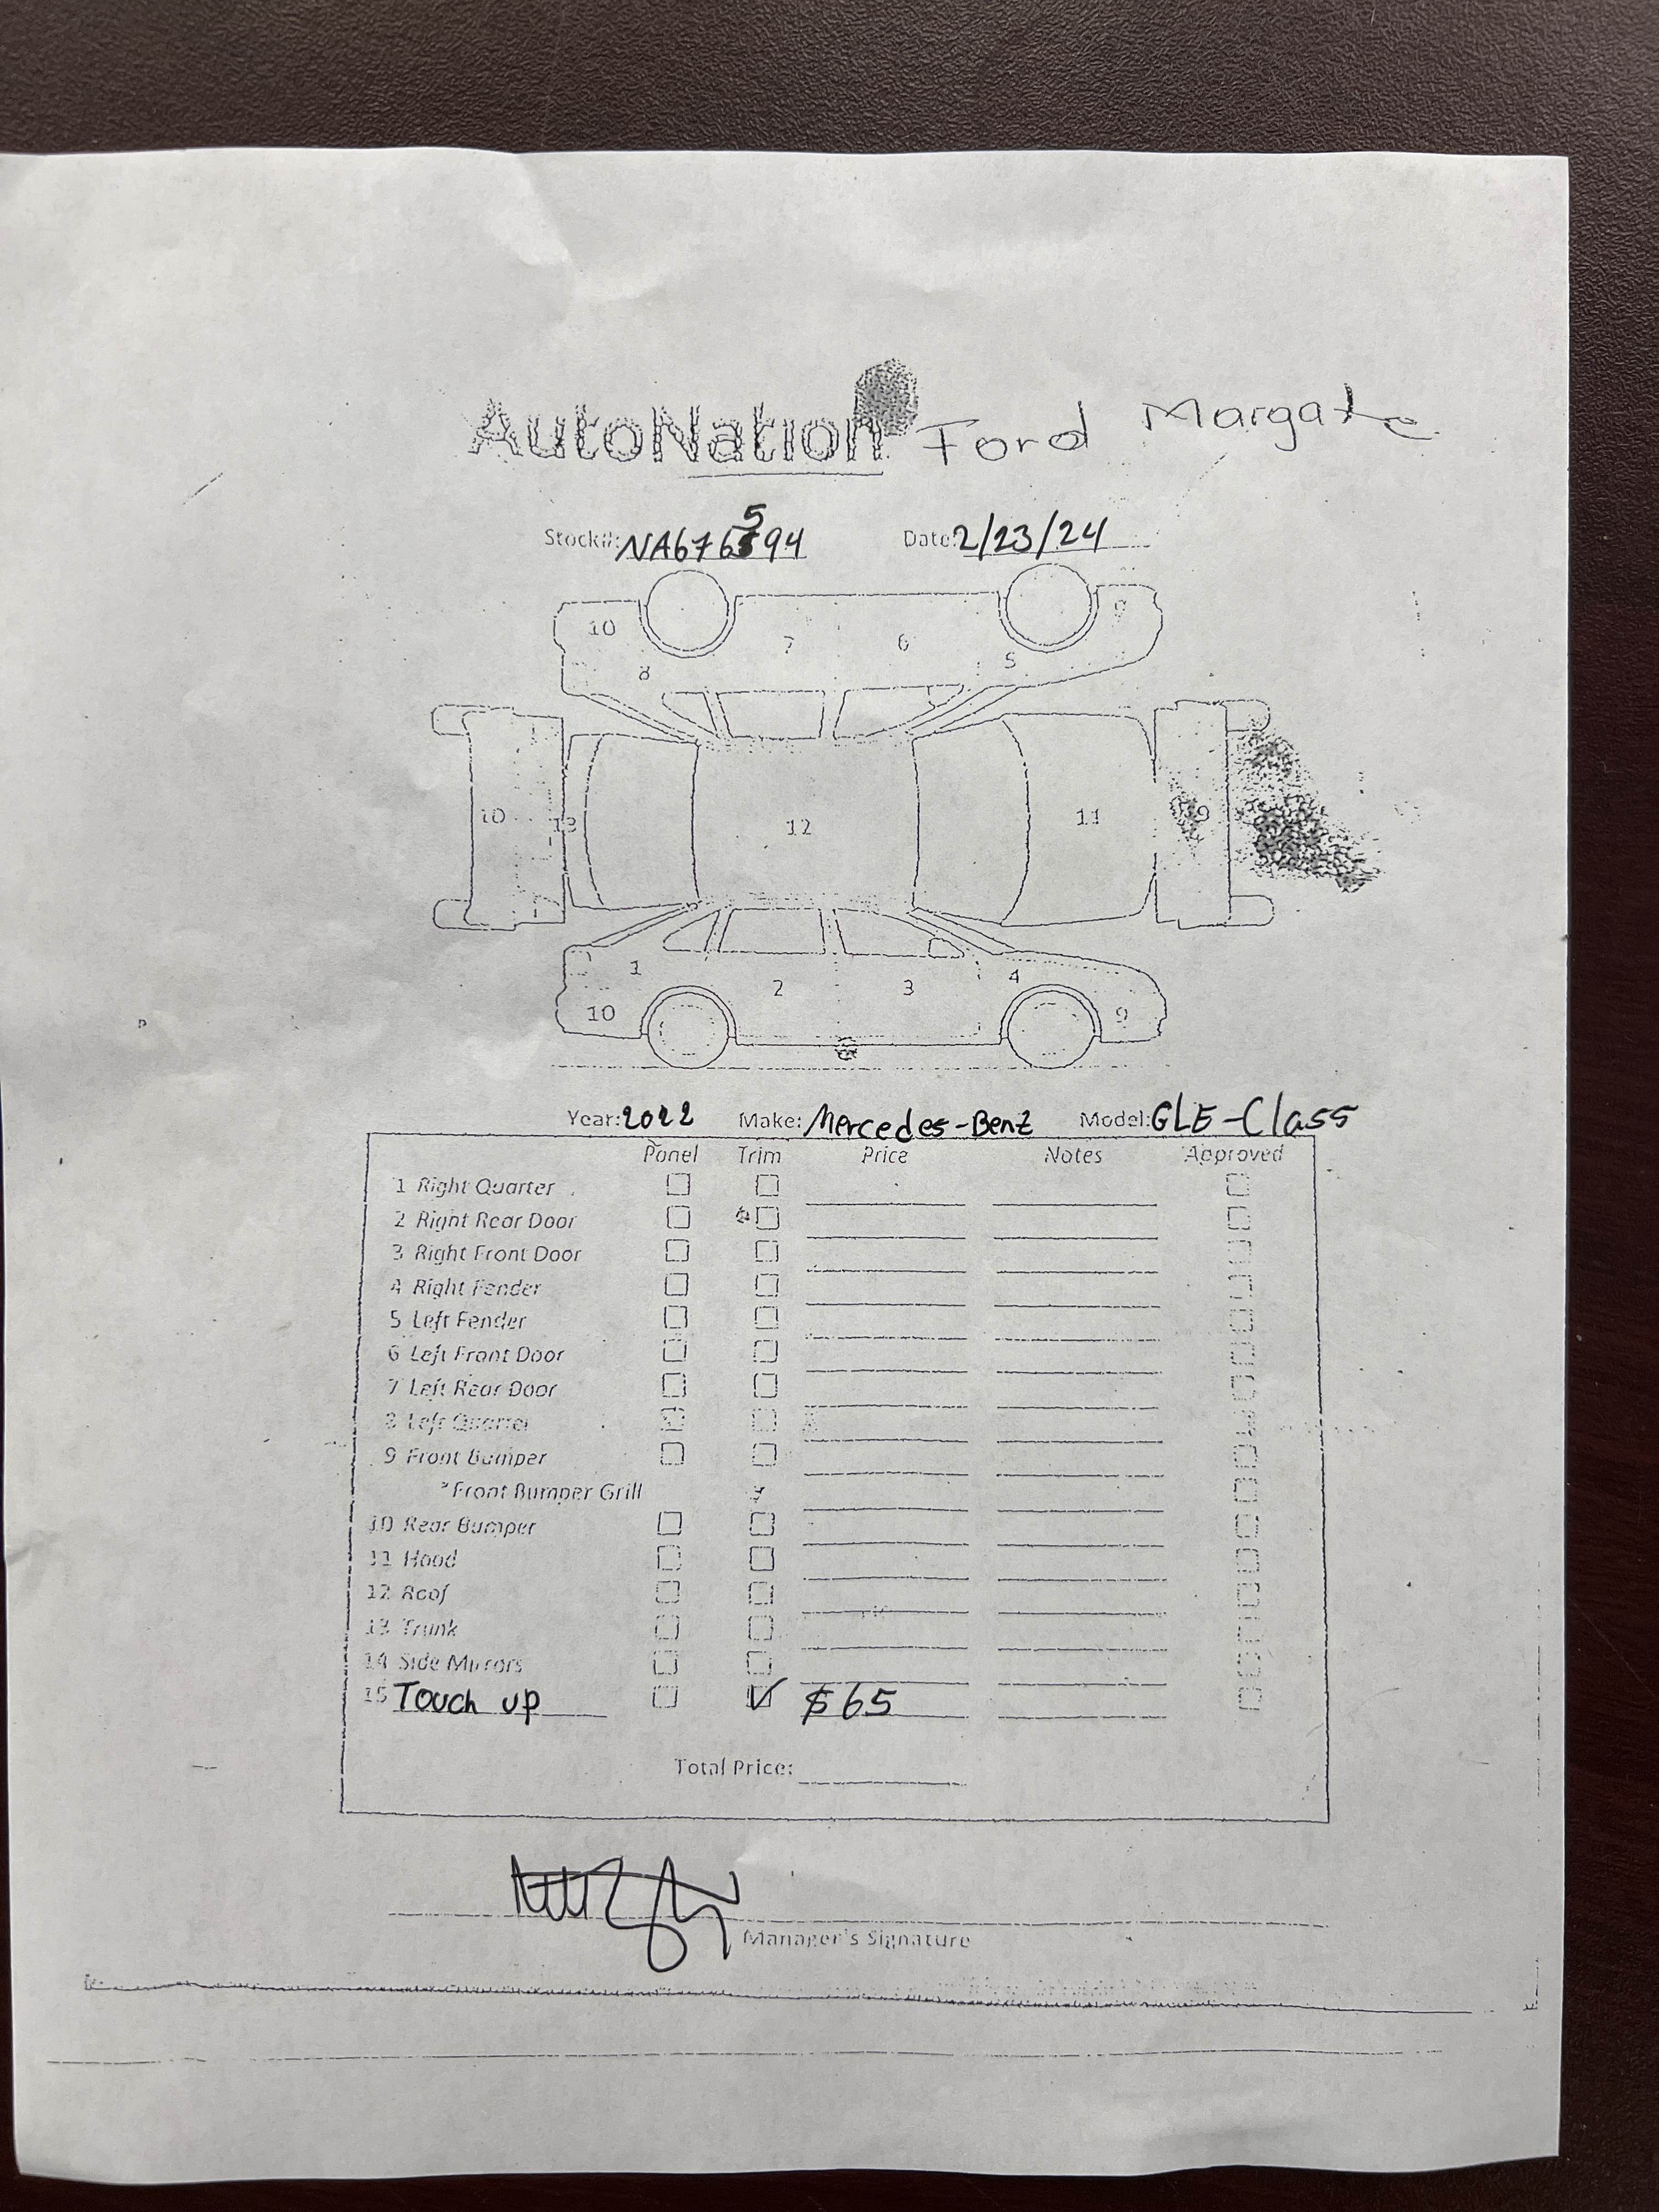 AutoNation Ford Margate
Stock#: NA676594 Date: 2/23/24
10 7 6 9
8 5
10 13 12 11 9
1 2 3 4
10 9
Year: 2022 Make: Mercedes-Benz Model: GLE-Class
Panel Trim Price Notes Approved
1 Right Quarter
2 Right Rear Door
3 Right Front Door
4 Right Fender
5 Left Fender
6 Left Front Door
7 Left Rear Door
8 Left Quarter
9 Front Bumper
*Front Bumper Grill
10 Rear Bumper
11 Hood
12 Roof
13 Trunk
14 Side Mirrors
15 Touch up ✓ $65
Total Price:
Manager's Signature